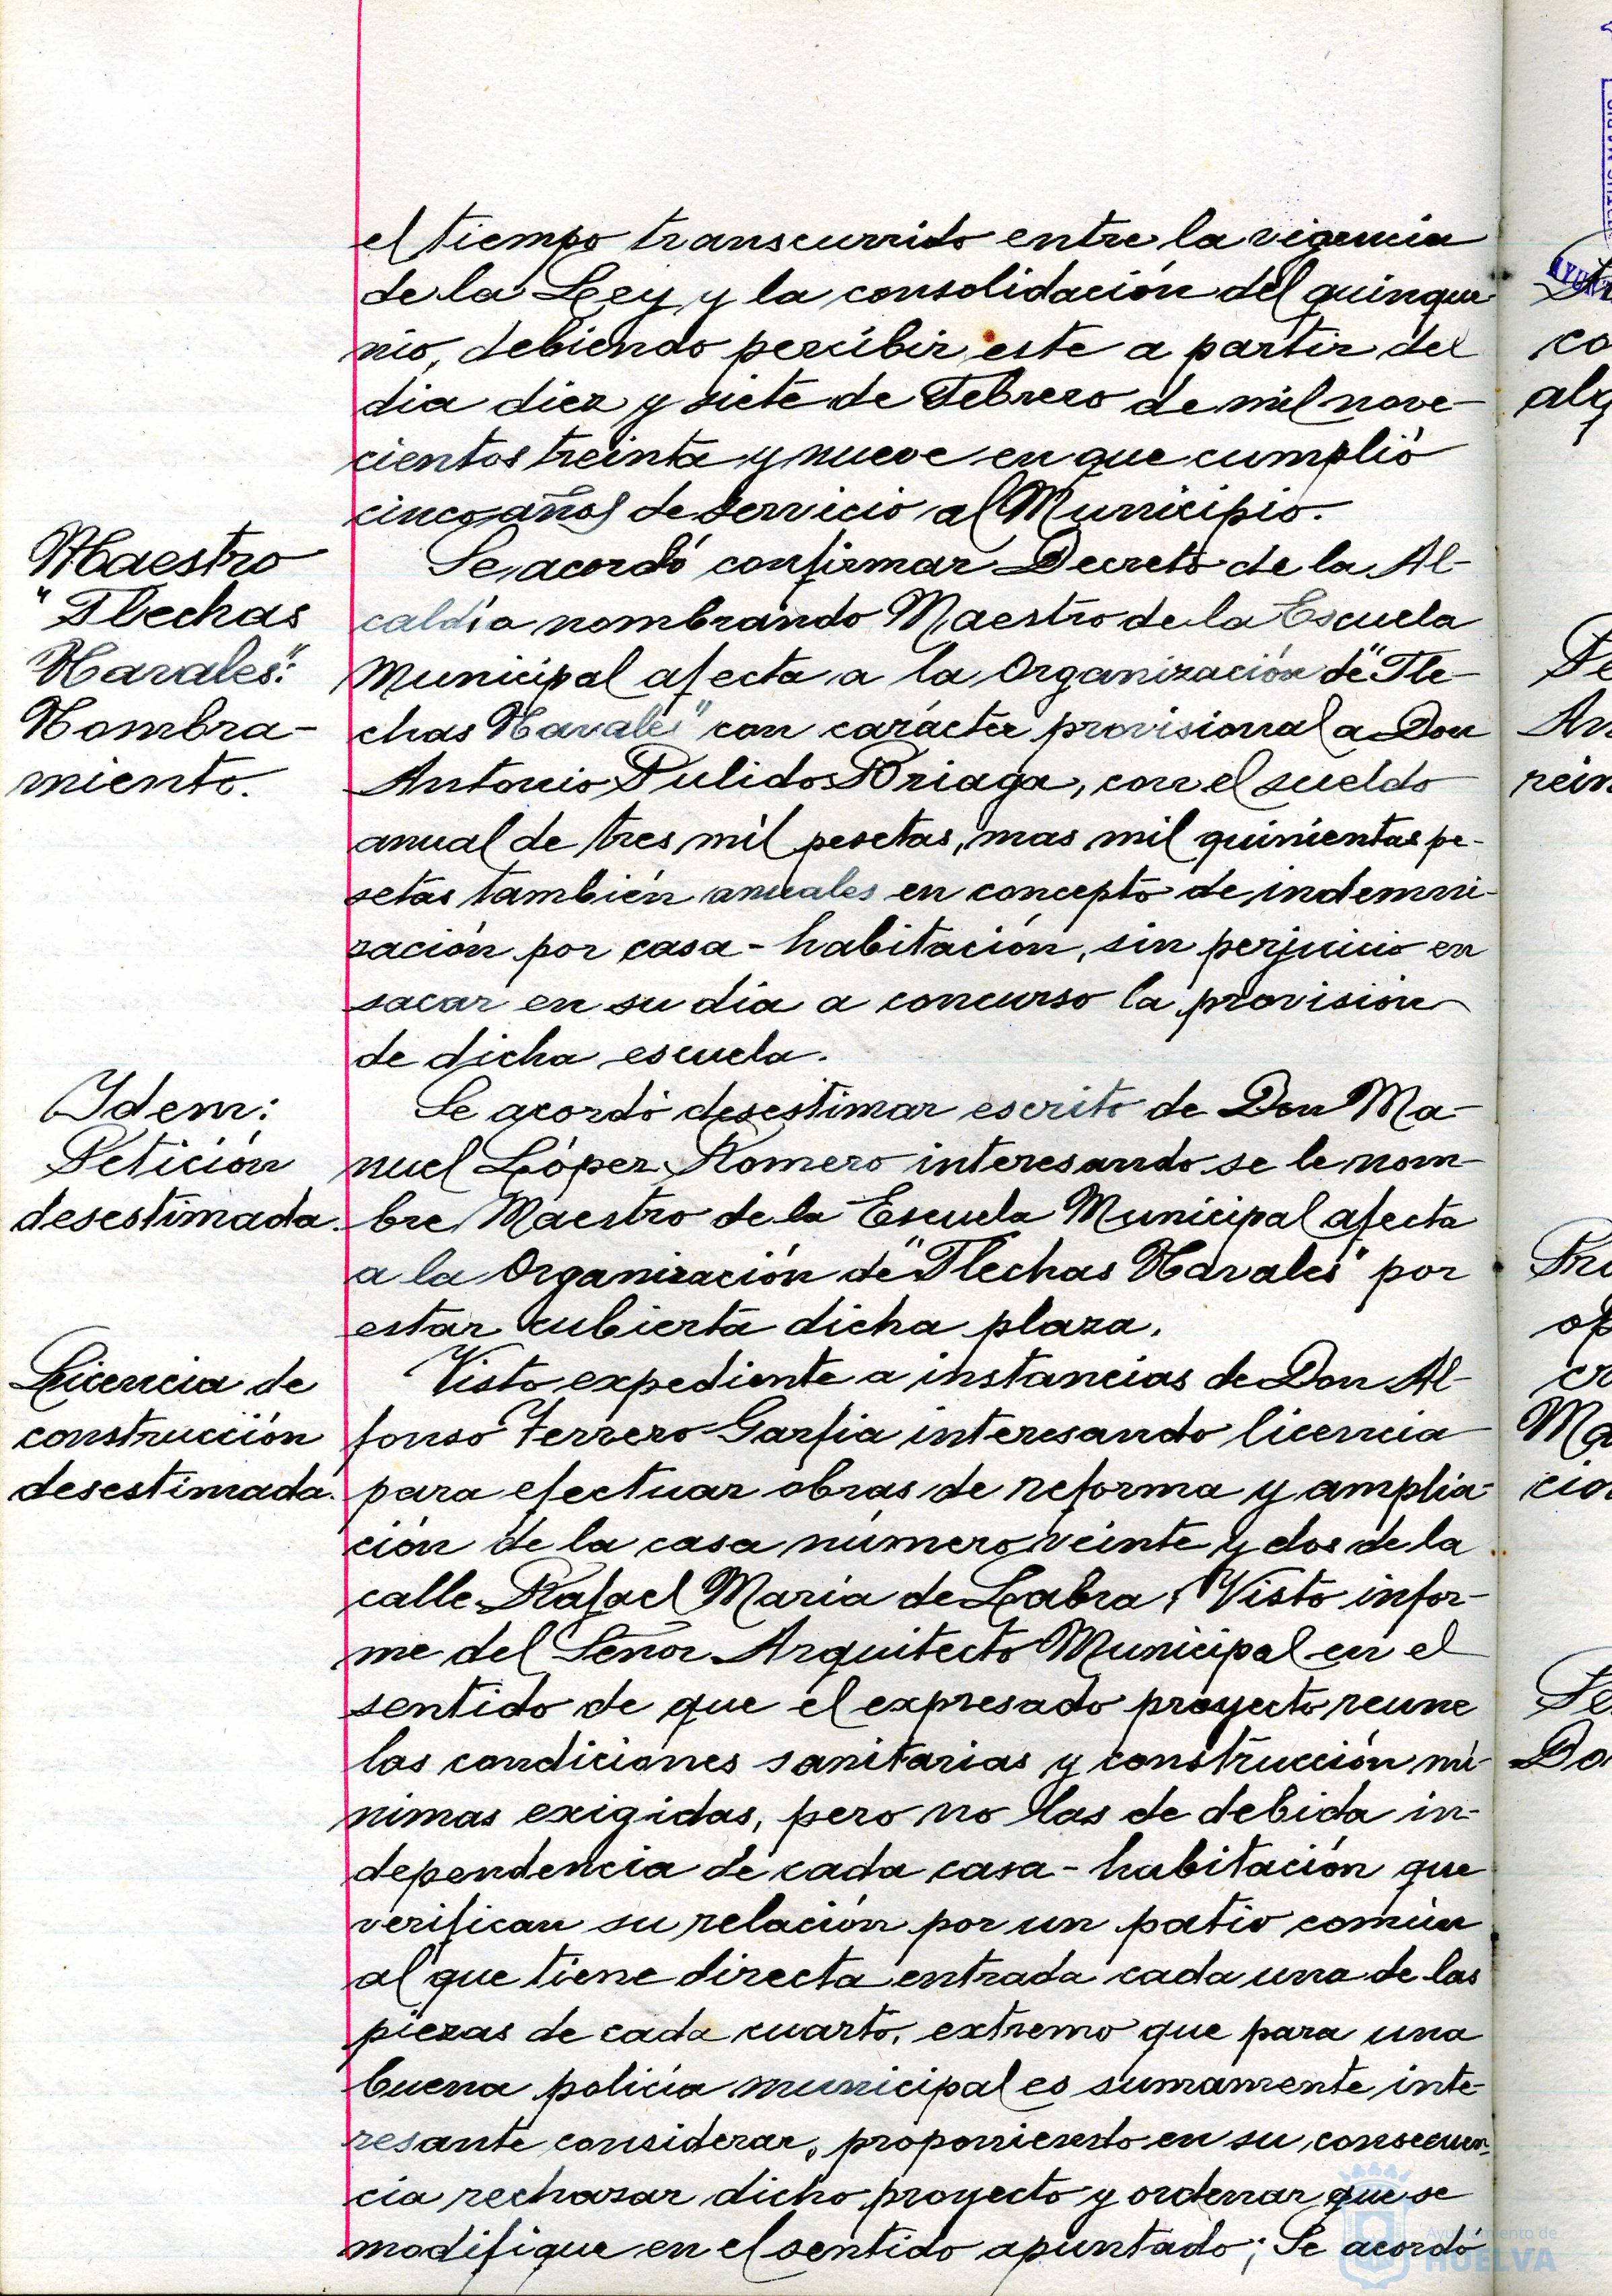 el tiempo transcurrido entre la vigencia
de la Ley y la consolidación del quinque-
nio, debiendo percibir este a partir del
dia diez y siete de Febrero de mil nove-
cientos treinta y nueve en que cumplió
cinco años de servicio al Municipio.
Maestro
"Flechas
Navales":
Nombra-
miento.
Se acordó confirmar Decreto de la Al-
caldía nombrando Maestro de la Escuela
Municipal afecta a la Organización de "Fle-
chas Navales" con carácter provisional a Don
Antonio Pulido Briaga, con el sueldo
anual de tres mil pesetas, mas mil quinientas pe-
setas también anuales en concepto de indemni-
zación por casa-habitación, sin perjuicio en
sacar en su día a concurso la provisión
de dicha escuela.
Idem:
Petición
desestimada.
Se acordó desestimar escrito de Don Ma-
nuel López Romero interesando se le nom-
bre Maestro de la Escuela Municipal afecta
a la Organización de "Flechas Navales" por
estar cubierta dicha plaza.
Licencia de
construcción
desestimada.
Visto expediente a instancias de Don Al-
fonso Ferrero Garfia interesando licencia
para efectuar obras de reforma y amplia-
ción de la casa número veinte y dos de la
calle Rafael Maria de Labra; Visto infor-
me del Señor Arquitecto Municipal en el
sentido de que el expresado proyecto reune
las condiciones sanitarias y construcción mí-
nimas exigidas, pero no las de debida in-
dependencia de cada casa-habitación que
verifican su relación por un patio común
al que tiene directa entrada cada una de las
piezas de cada cuarto, extremo que para una
buena policía municipal es sumamente inte-
resante considerar, proponiendo en su consecuen-
cia rechazar dicho proyecto y ordenar que se
modifique en el sentido apuntado; Se acordó
Ayuntamiento de
HUELVA